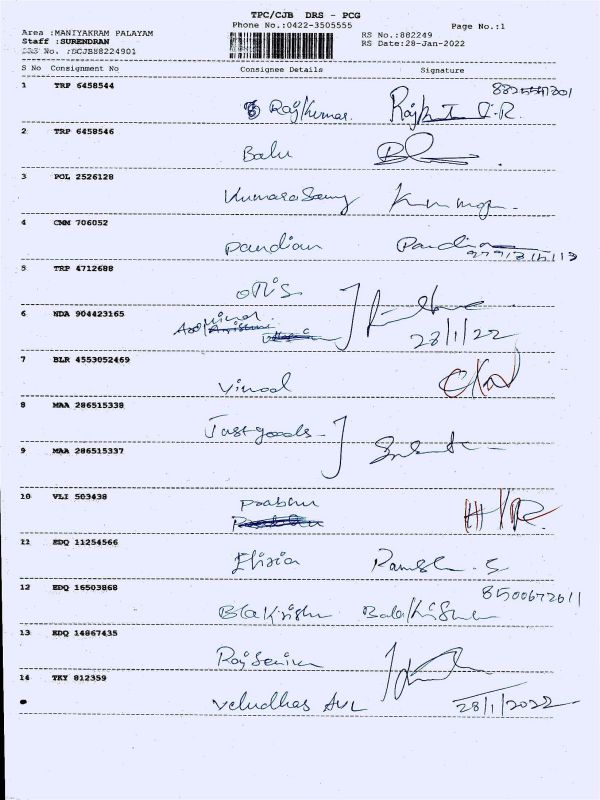 TPC/CJB DRS - PCG
Phone No.:0422-3505555
Page No.:1
Area :MANIYAKRAM PALAYAM
Staff :SURENDRAN
DRS No. :BCJB88224901
RS No.:882249
RS Date:28-Jan-2022
S No Consignment No Consignee Details Signature
1 TRP 6458544
Rajkumar
2 TRP 6458546
Balu
3 POL 2526128
Kumarasamy
4 CMM 706052
Pandian Pandian
5 TRP 4712688
OTIS
6 NDA 904423165
28/1/22
7 BLR 4553052469
Vinod
8 MAA 286515338
Just goods
9 MAA 286515337
10 VLI 503438
Prabhu
11 EDQ 11254566
Ramesh. S
12 EDQ 16503868
8500672611
Balakrishn
13 EDQ 14867435
14 TKY 812359
Veludhas AVL 28/1/2022